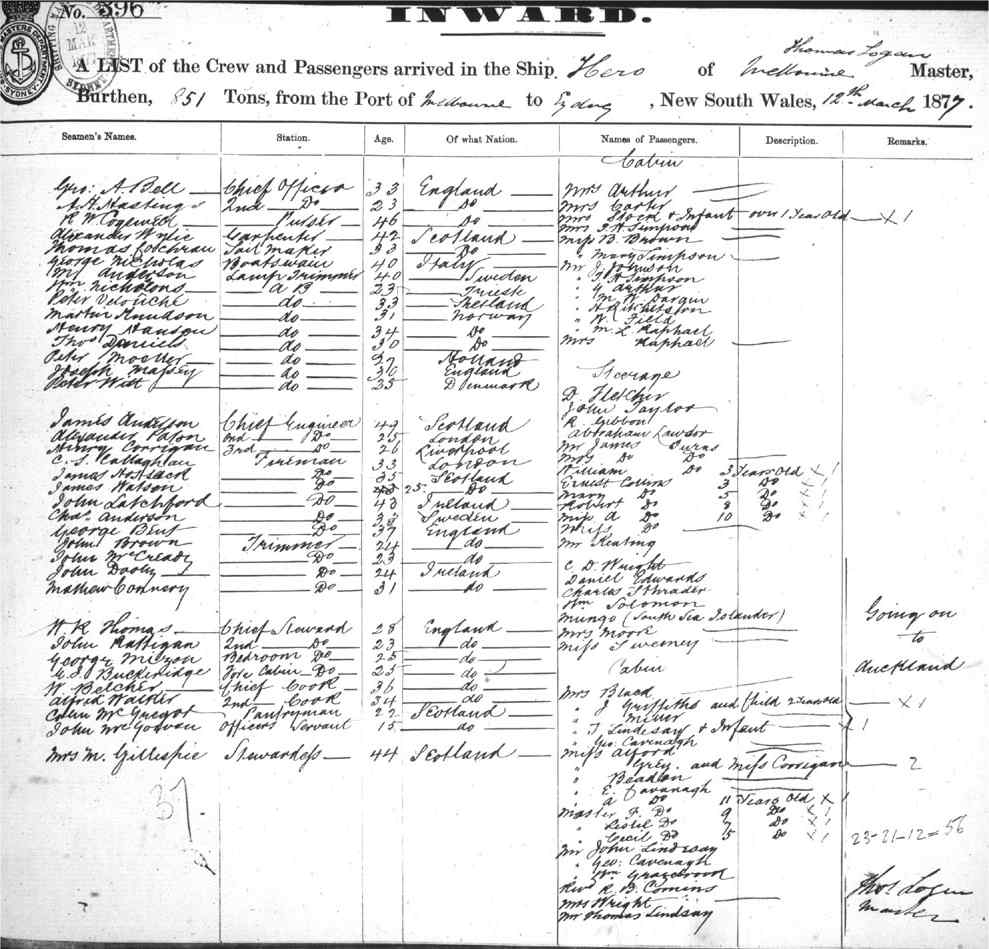 No. 396
INWARD.
Thomas Logan
A LIST of the Crew and Passengers arrived in the Ship Hero of Melbourne Master,
Burthen, 851 Tons, from the Port of Melbourne to Sydney, New South Wales, 12th March 1877.
Seamen's Names. Station. Age. Of what Nation. Names of Passengers. Description. Remarks.
Cabin
Geo: A. Bell Chief Officer 33 England Mrs Arthur
A. H. Hastings 2nd Do 23 Do Mrs Carter
R W Purser 46 Do Mrs Stock & Infant over 1 Year Old X 1
Alexander Wylie Carpenter 42 Scotland Mrs J. H. Simpson
Thomas Sail Maker 33 Do Miss B. Brown
George Nicholas Boatswain 40 Italy " Mary Simpson
Anderson Lamp Trimmer 40 Sweden Mr J. Johnson
Wm Nicholons A B 23 Trieste " Simpson
Peter do 33 Shetland " Arthur
Martin Knudson do 31 Norway " M. W. Dargin
Henry Hanson do 34 Do
Thos Daniels do 30 Do " Field
Peter Moeller do Holland " M. L Raphael
Joseph Massey do 30 England Mrs Raphael
Peter Witt do 35 Denmark
Steerage
D. Fletcher
John Taylor
James Anderson Chief Engineer 49 Scotland R. Gibbon
Alexander Paton 2nd Do 25 London Abraham Lawdor
Henry Corrigan 3rd Do 26 Liverpool Mr James Burns
C. S. Callaghan Fireman 33 London Mrs Do Do
James Do 35 Scotland William Do 3 Years Old X 1
James Watson Do 25 Do Ernest Collins 3 Do
John Latchford Do 43 Ireland Mary Do 5 Do
Chas. Anderson Do Sweden Robert Do 8 Do
George Do 37 England Miss A Do 10 Do
John Brown Trimmer 24 do Do
John McCready Do 23 do Mr Keating
John Dooly Do 24 Ireland C. D. Wright
Mathew Connery Do 31 do Daniel Edwards
Charles Schrader
Wm Solomon
Mungo (South Sea Islander)
W R Thomas Chief Steward 28 England Mrs Moore
John Rattigan 2nd Do 23 do Miss Sweeney
Going on
to
Auckland
George Bedroom Do 25 do
G. S. Buckeridge Fore Cabin Do 25 do Cabin
W. Belcher Chief Cook 36 do Mrs Black
Alfred Walder 2nd Cook 34 do " J Griffiths and Child 2 Years old X 1
Colin McGregor Pantryman 22 Scotland " Milner
John McGowan Officers Servant 15 do " T. Lindesay & Infant X 1
" Geo: Cavenagh
Mrs M. Gillespie Stewardess 44 Scotland Miss Alford
" Grey. and Miss Corrigan 2
37
" Beadon
" E. Cavanagh
" A Do 11 Years Old X 1
Master F. Do 9 Do X 1
" Leslie Do 7 Do X 1
" Cecil Do 5 Do X 1
23-21-12=56
Mr John Lindesay
" Geo: Cavenagh
" Wm Grasebrook
Revd R. B. Comins
Mrs Wright
Mr Thomas Lindsay
Thos Logan
Master